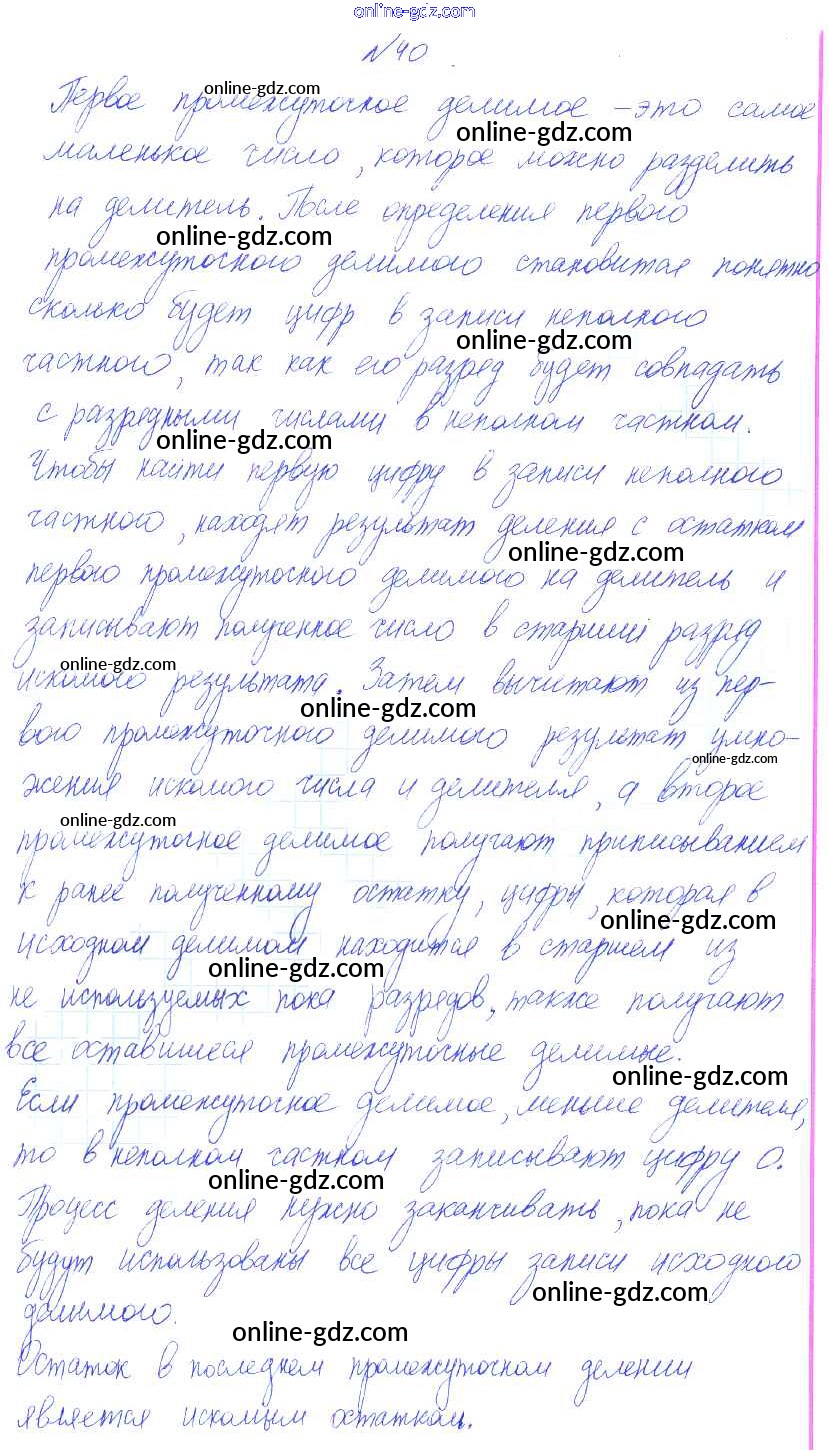 online-gdz.com
№40
online-gdz.com
Первое промежуточное делимое – это самое
online-gdz.com
маленькое число, которое можно разделить
на делитель. После определения первого
online-gdz.com
промежуточного делимого становится понятно
сколько будет цифр в записи неполного
online-gdz.com
частного, так как его разряд будет совпадать
с разрядными числами в неполном частном.
online-gdz.com
Чтобы найти первую цифру в записи неполного
частного, находят результат деления с остатком
online-gdz.com
первого промежуточного делимого на делитель и
записывают полученное число в старший разряд
online-gdz.com
искомого результата. Затем вычитают из пер-
online-gdz.com
вого промежуточного делимого результат умно-
online-gdz.com
жения искомого числа и делителя, а второе
online-gdz.com
промежуточное делимое получают приписыванием
к ранее полученному остатку, цифры, которая в
online-gdz.com
исходном делимом находится в старшем из
online-gdz.com
не используемых пока разрядов, также получают
все оставшиеся промежуточные делимые.
online-gdz.com
Если промежуточное делимое, меньше делителя,
то в неполном частном записывают цифру 0.
online-gdz.com
Процесс деления нужно заканчивать, пока не
будут использованы все цифры записи исходного
online-gdz.com
делимого.
online-gdz.com
Остаток в последнем промежуточном делении
является искомым остатком.